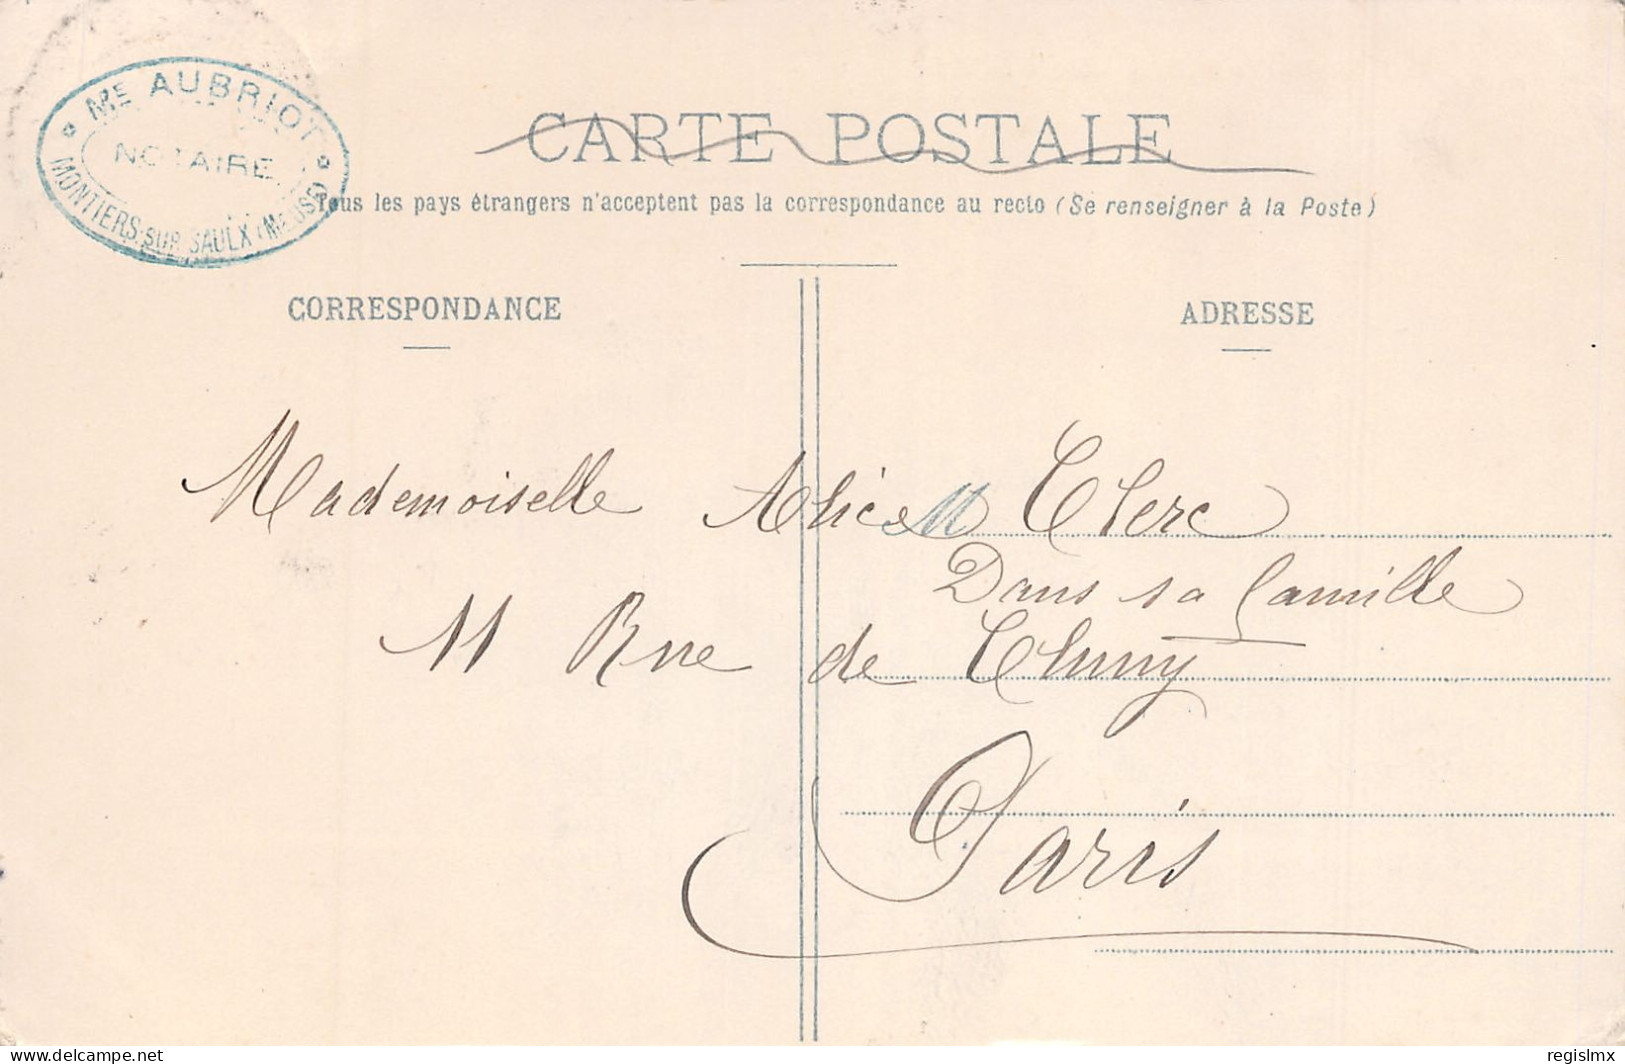 Me AUBRIOT
NOTAIRE
MONTIERS-SUR-SAULX (MEUSE)
CARTE POSTALE
Tous les pays étrangers n'acceptent pas la correspondance au recto (Se renseigner à la Poste)
CORRESPONDANCE
ADRESSE
Mademoiselle Alice Clerc
Dans sa famille
11 Rue de Cluny
Paris
delcampe.net
regislmx